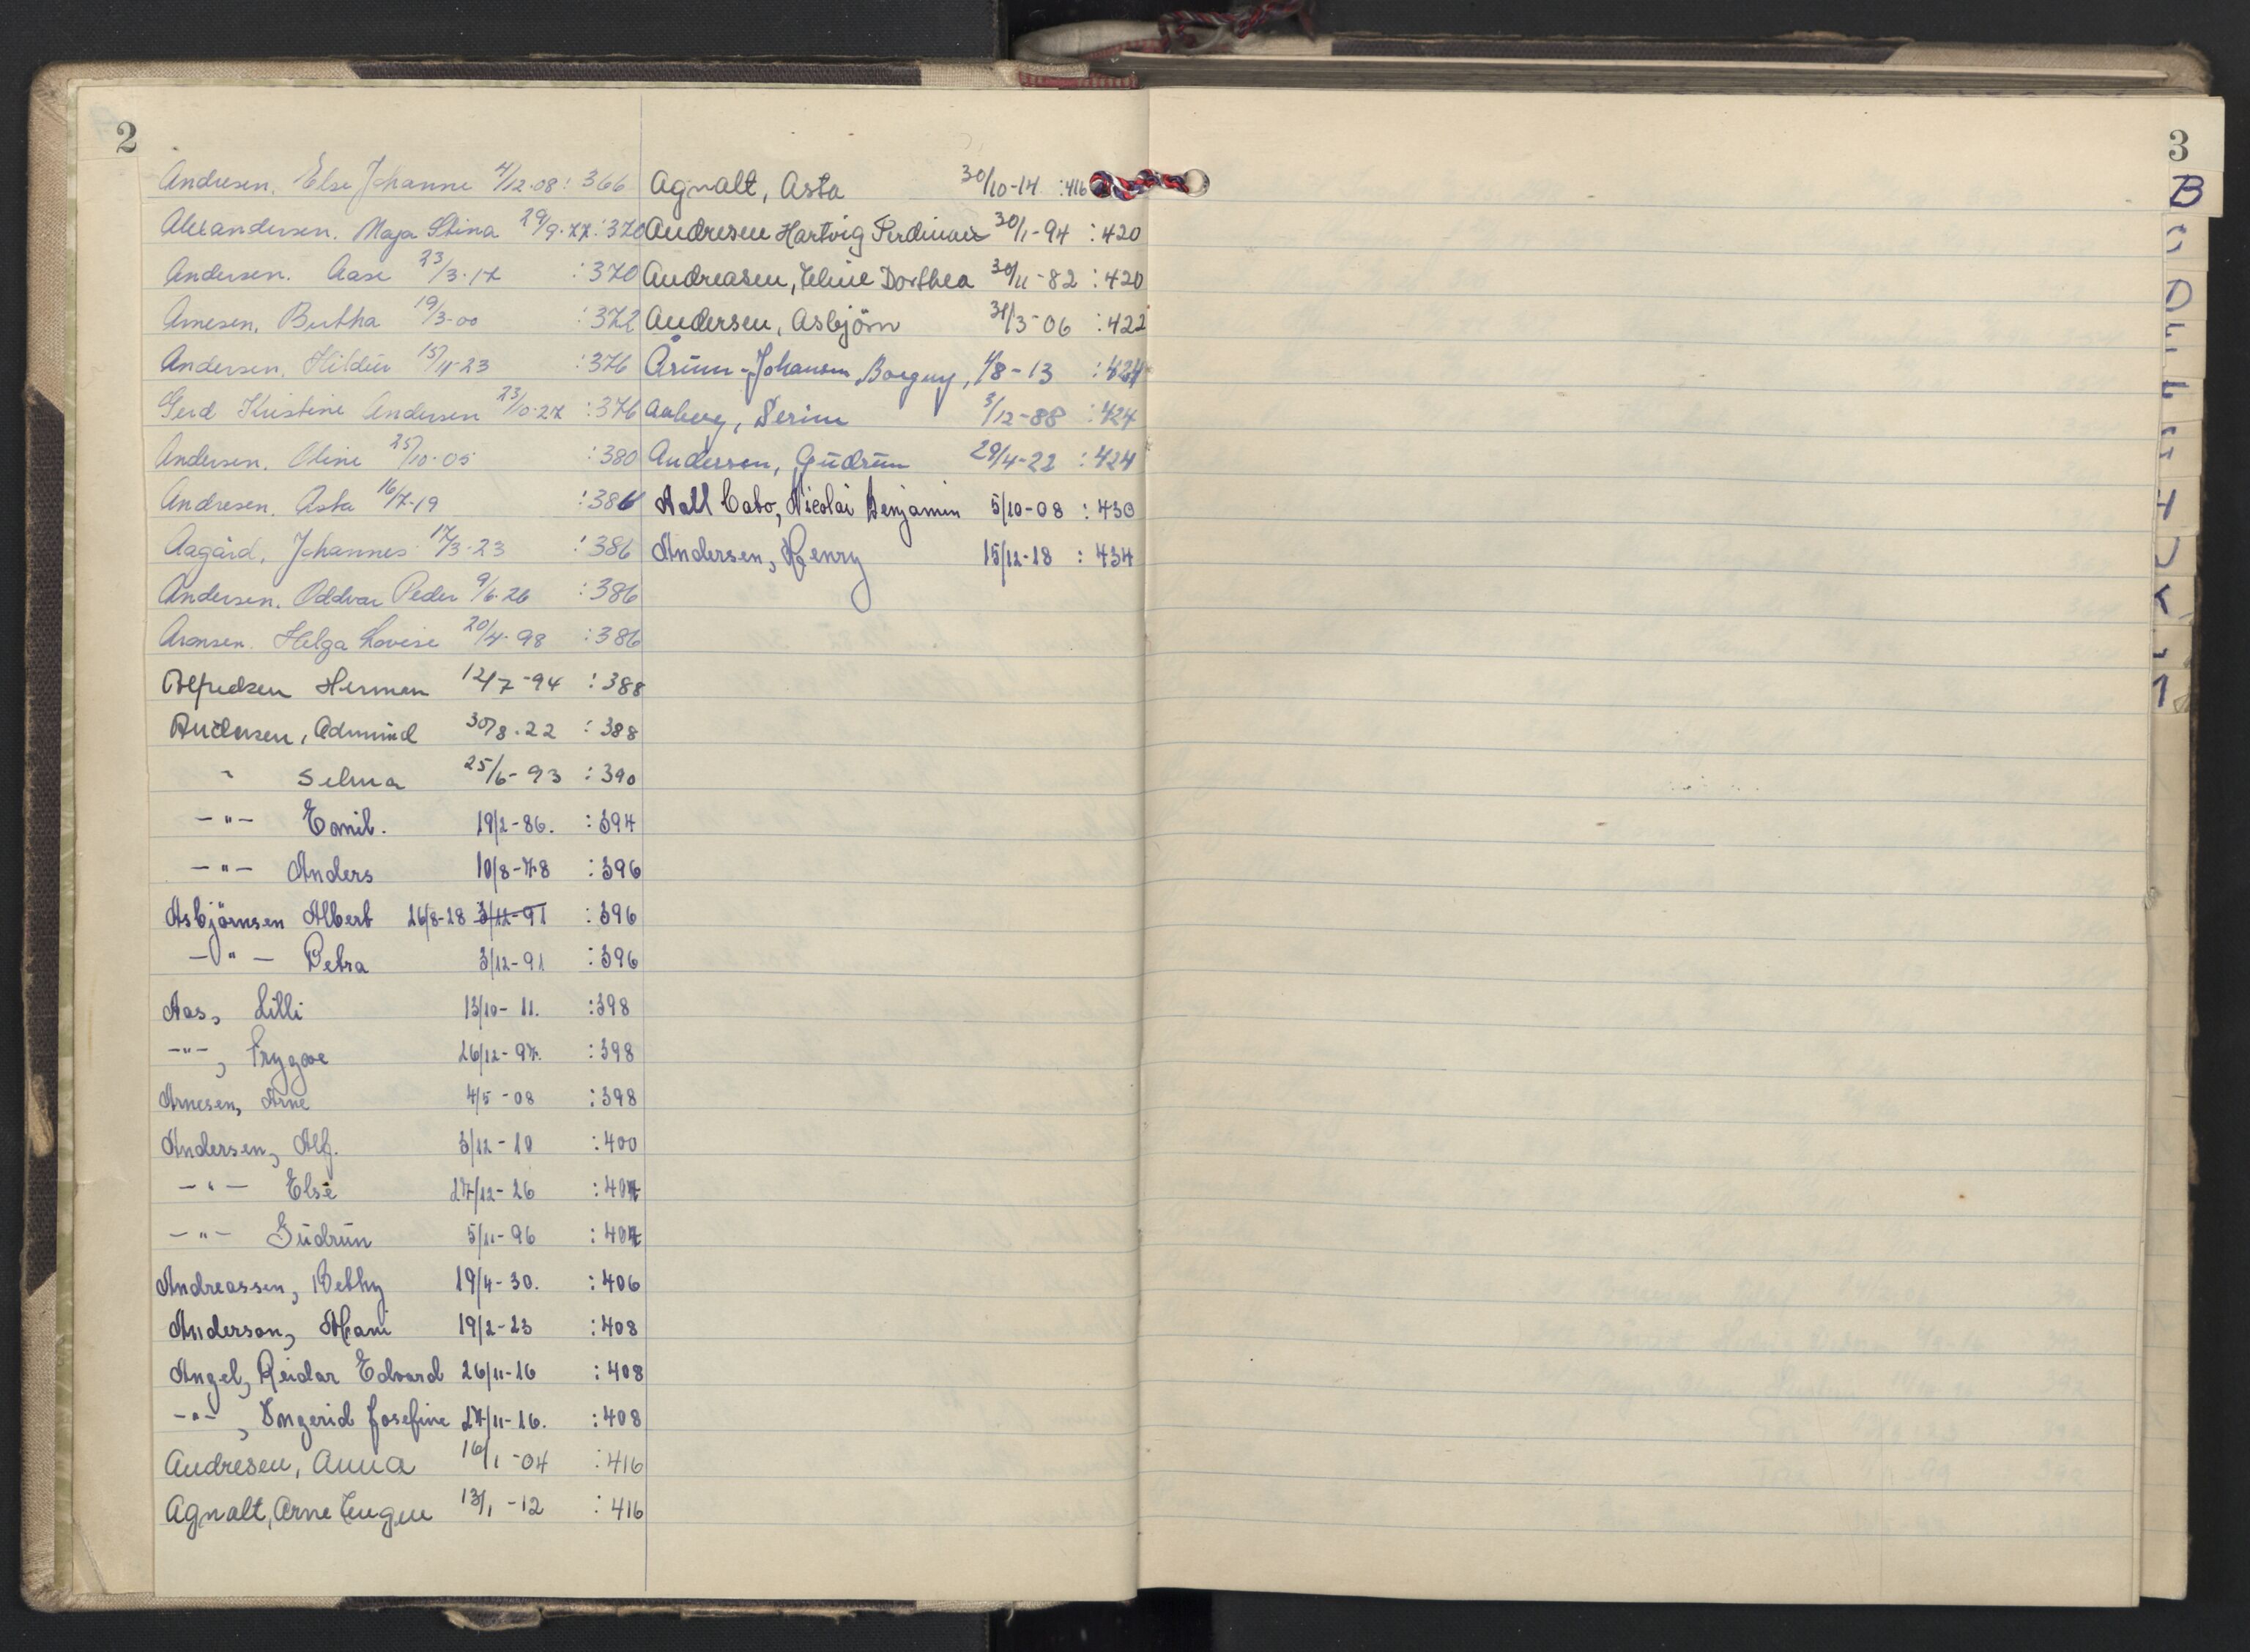 2
Andresen, Else Johanne 4/12-08 : 366
Alexandersen. Maja Stina 29/9-77 : 370
Andersen. Aase 23/3-17 : 370
Arnesen, Bertha 19/3-00 : 372
Andersen, Hildur 15/11-23 : 376
Gerd Kristine Andersen 23/10-27 : 376
Andersen. Oline 25/10-05 : 380
Andresen. Asta 16/7-19 : 386
Aagård, Johannes 17/3-23 : 386
Andersen. Oddvar Peder 9/6-26 : 386
Aronsen. Helga Lovise 20/4-98 : 386
Alfredsen Herman 12/7-94 : 388
Andersen, Admund 30/8-22 : 388
" Selma 25/6-93 : 390
-"- Emil. 19/2-86. : 394
-"- Anders 10/8-78 : 396
Asbjörnsen Albert 26/8-28 3/12-91 : 396
-"- Petra 3/12-91 : 396
Aas, Lilli 13/10-11. : 398
-"-, Trygve 26/12-97. : 398
Arnesen, Arne 4/5-08 : 398
Andersen, Alf. 3/12-10 : 400
-"- Else 27/12-26 : 404
-"- Gudrun 5/11-96 : 404
Andreassen, Bethy 19/4-30. : 406
Anderson, 19/2-23 : 408
Angel, Reidar Edvard 26/11-16 : 408
-"-, Ingerid Josefine 27/11-16. : 408
Andresen, Anna 16/1-04 : 416
Agnalt, Arne Eugen 13/1-12 : 416
Agnalt, Asta 30/10-14 : 416
Andresen Hartvig Ferdinan 30/1-94 : 420
Andreasen, Eline Dorthea 30/11-82 : 420
Andersen, Asbjörn 31/3-06 : 422
Årum-Johansen, Borgny, 1/8-13 : 424
Aaberg, Serine 3/12-88 : 424
Andersen, Gudrun 29/4-22 : 424
Aall Cabo, Nicolai Benjamin 5/10-08 : 430
Andersen, Henry 15/12-18 : 434
3
B
D
E
F
H
J
K